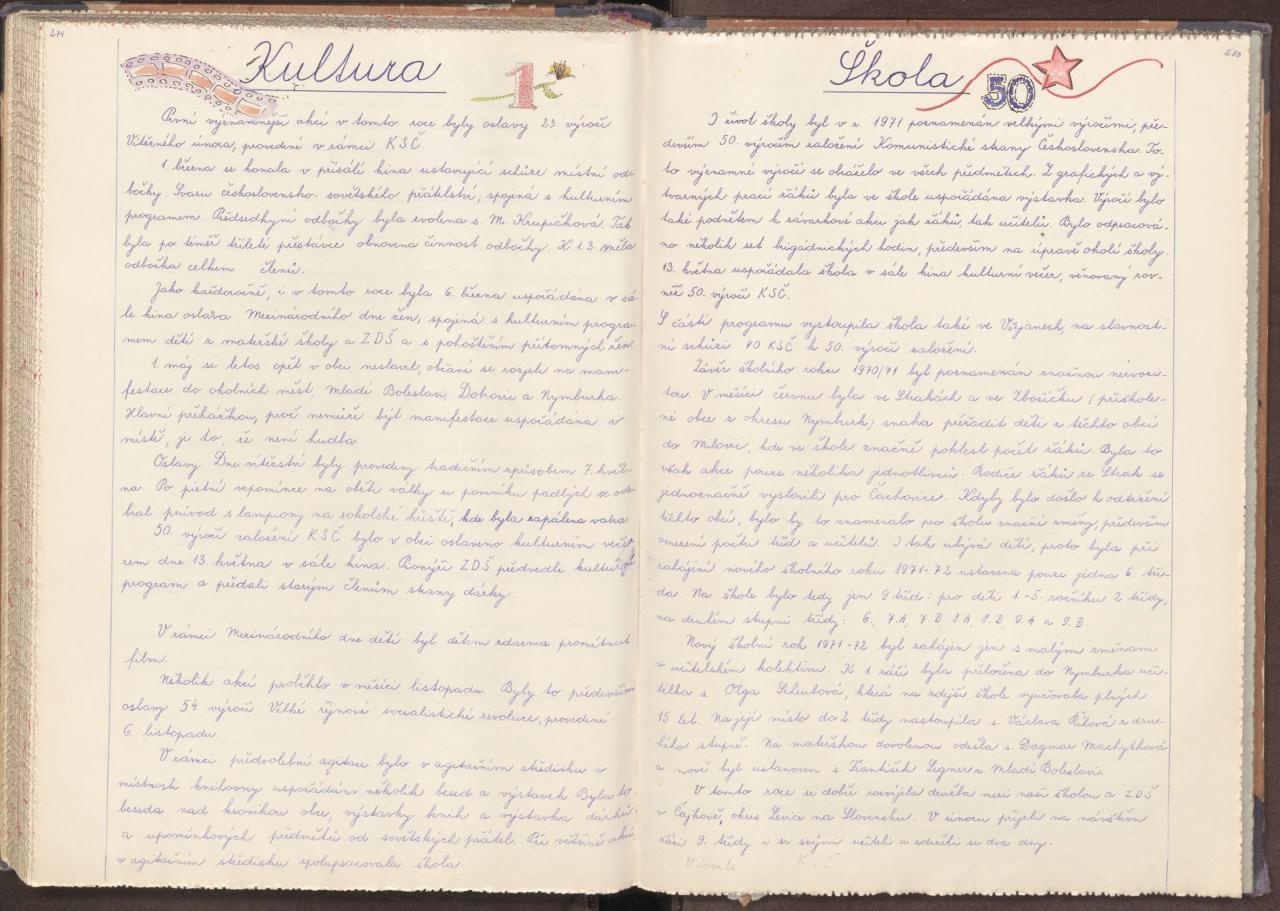 279
Kultura
1
První významnější akcí v tomto roce byly oslavy 23. výročí
Vítězného února, provedené v rámci KSČ.
1. března se konala v přísálí kina ustavující schůze místní od-
bočky Svazu československo-sovětského přátelství, spojená s kulturním
programem. Předsedkyní odbočky byla zvolena s. M. Krupičková. Tak
byla po téměř tříleté přestávce obnovena činnost odbočky. K 1.3. měla
odbočka celkem členů.
Jako každoročně, i v tomto roce byla 6. března uspořádána v sá-
le kina oslava Mezinárodního dne žen, spojená s kulturním progra-
mem dětí z mateřské školy a ZDŠ a s pohoštěním přítomných žen.
1. máj se letos opět v obci neslavil, občané se rozjeli na mani-
festace do okolních měst, Mladé Boleslavi, Dobrovic a Nymburka.
Hlavní překážkou, proč nemůže být manifestace uspořádána v
místě, je to, že není hudba.
Oslavy Dne vítězství byly provedeny tradičním způsobem 7. květ-
na. Po pietní vzpomínce na oběti války u pomníku padlých se ode-
bral průvod s lampiony na sokolské hřiště, kde byla zapálena vatra.
50. výročí založení KSČ bylo v obci oslaveno kulturním veče-
rem dne 13. května v sále kina. Pionýři ZDŠ předvedli kulturní
program a předali starým členům strany dárky.
V rámci Mezinárodního dne dětí byl dětem zdarma promítnut
film.
Několik akcí proběhlo v měsíci listopadu. Byly to především
oslavy 54. výročí Velké říjnové socialistické revoluce, provedené
6. listopadu.
V rámci předvolební agitace bylo v agitačním středisku v
místnosti knihovny uspořádáno několik besed a výstavek. Byla to
beseda nad kronikou obce, výstavky knih a výstavka dárků
a upomínkových předmětů od sovětských přátel. Při většině akcí
v agitačním středisku spolupracovala škola.
280
Škola
50
I život školy byl v r. 1971 poznamenán velkými výročími, pře-
devším 50. výročím založení Komunistické strany Československa. To-
to významné výročí se obráželo ve všech předmětech. Z grafických a vý-
tvarných prací žáků byla ve škole uspořádána výstavka. Výročí bylo
také podnětem k závazkové akci jak žáků, tak učitelů. Bylo odpracová-
no několik set brigádnických hodin, především na úpravě okolí školy.
13. května uspořádala škola v sále kina kulturní večer, věnovaný rov-
něž 50. výročí KSČ.
S částí programu vystoupila škola také ve Všejanech, na slavnost-
ní schůzi VO KSČ k 50. výročí založení.
Závěr školního roku 1970/71 byl poznamenán značnou nervozi-
tou. V měsíci červnu byla ve Strakách a ve Zbožíčku (přiškole-
né obce z okresu Nymburk) snaha přeřadit děti z těchto obcí
do Milovic, kde ve škole značně poklesl počet žáků. Byla to
však akce pouze několika jednotlivců. Rodiče žáků ze Strak se
jednoznačně vyslovili pro Čachovice. Kdyby bylo došlo k odtržení
těchto obcí, bylo by to znamenalo pro školu značné změny, především
omezení počtu tříd a učitelů. I tak ubývá dětí, proto byla při
zahájení nového školního roku 1971-72 ustavena pouze jedna 6. tří-
da. Na škole bylo tedy jen 9 tříd: pro děti 1.-5. ročníku 2 třídy,
na druhém stupni třídy: 6., 7.A, 7.B, 8.A, 8.B, 9.A a 9.B.
Nový školní rok 1971-72 byl zahájen jen s malými změnami
v učitelském kolektivu. K 1. září byla přeložena do Nymburka uči-
telka s. Olga Scheubová, která na zdejší škole vyučovala plných
15 let. Na její místo do 2. třídy nastoupila s. Václava Řílová z dru-
hého stupně. Na mateřskou dovolenou odešla s. Dagmar Machytková
a nově byl ustanoven s. František Legner z Mladé Boleslavi.
V tomto roce se dobře rozvíjela družba mezi naší školou a ZDŠ
v Čajkově, okres Levice na Slovensku. V únoru přijeli na návštěvu
žáci 9. třídy i se svými učiteli a zdrželi se dva dny.
V tomto KSČ